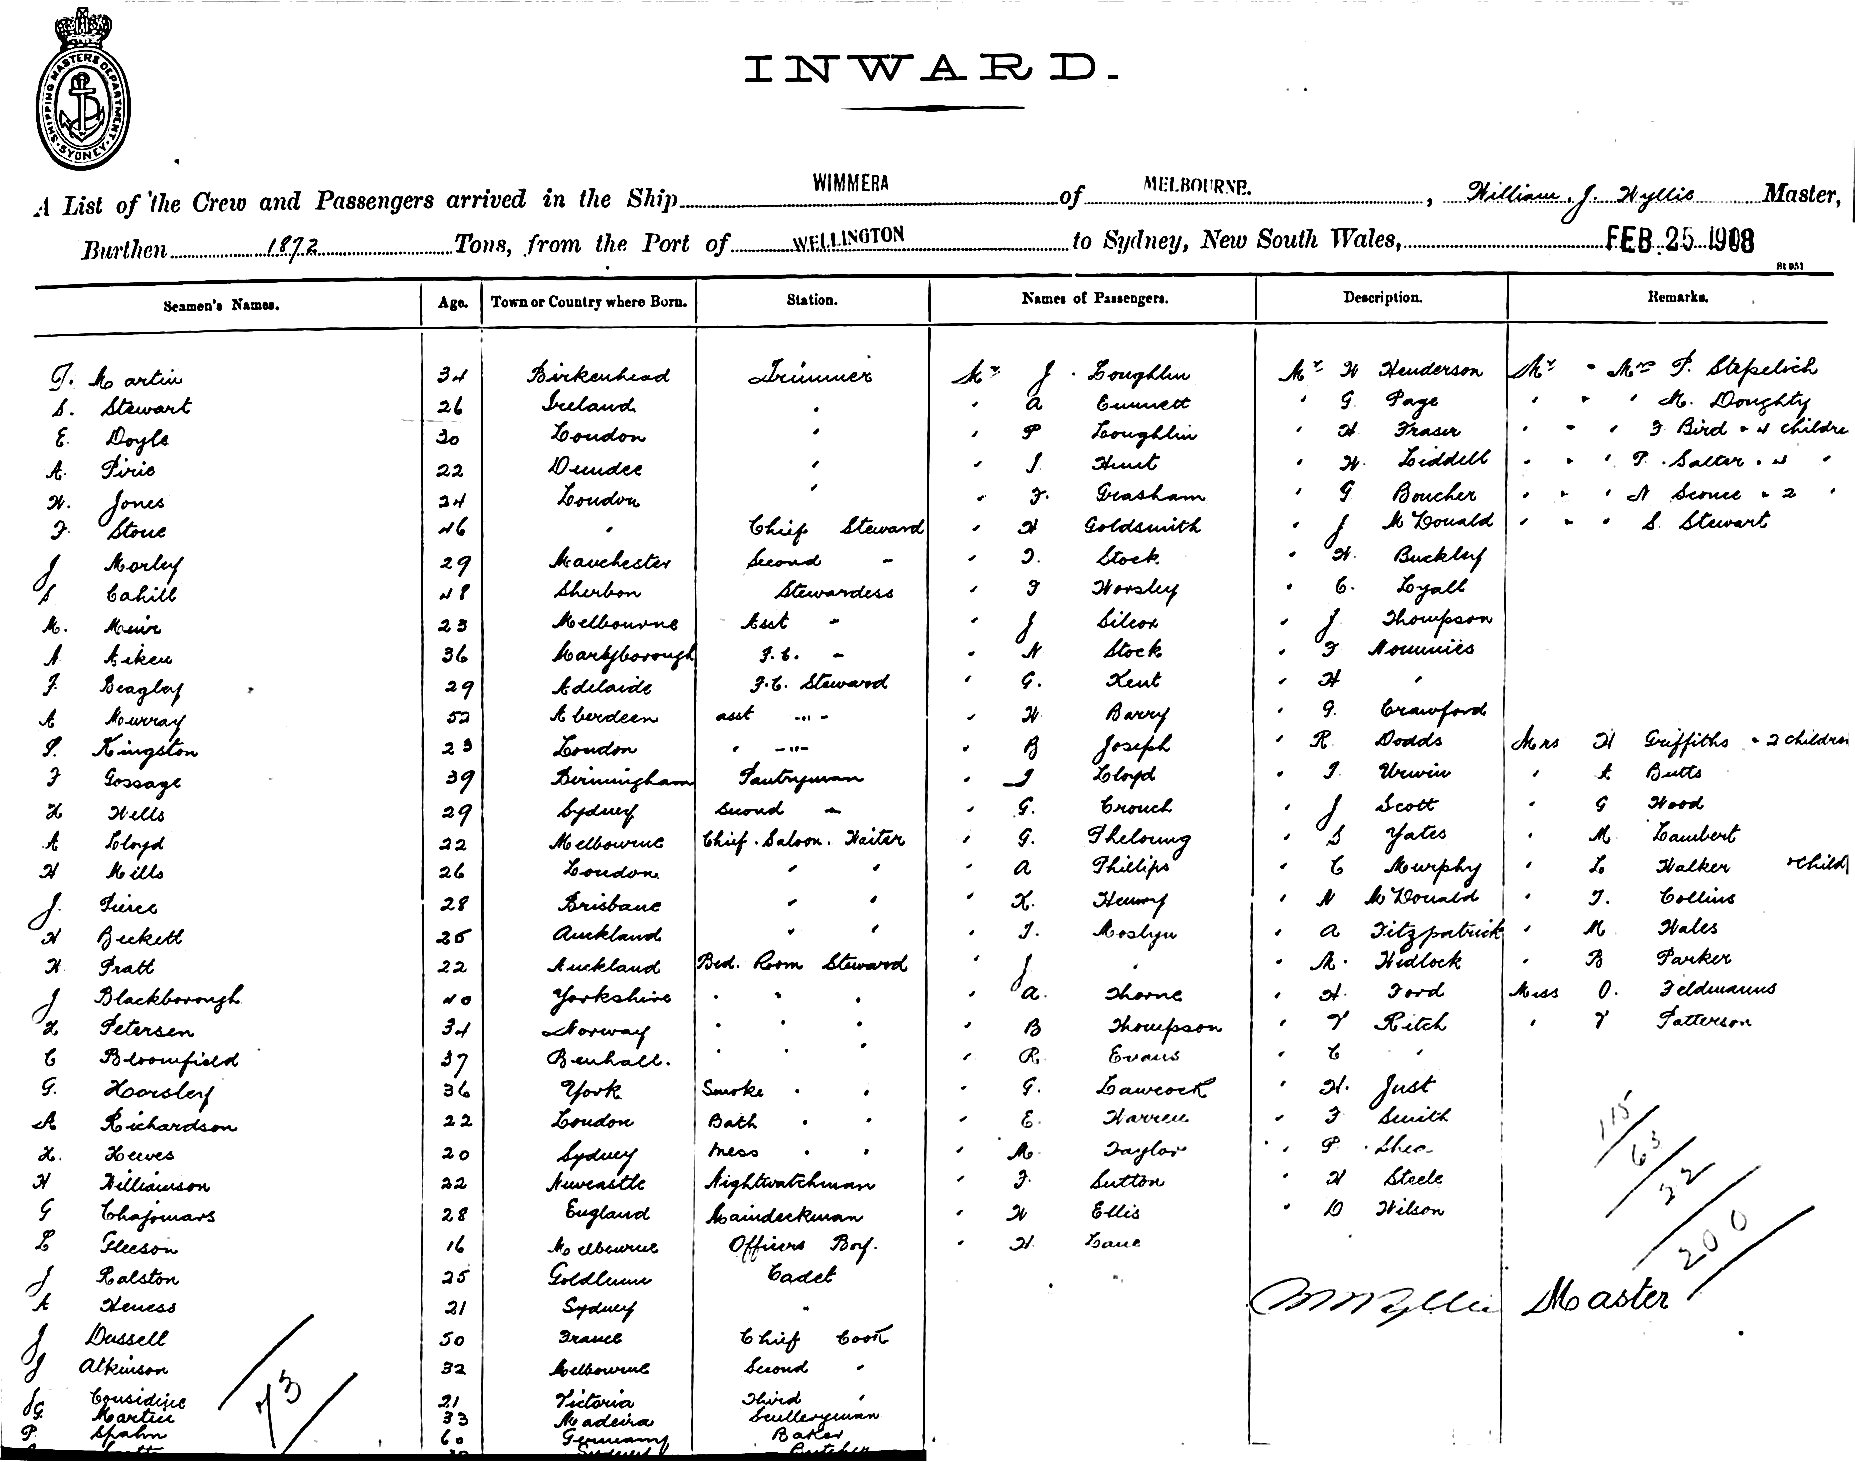 SHIPPING MASTERS DEPARTMENT SYDNEY
INWARD.
A List of the Crew and Passengers arrived in the Ship WIMMERA of MELBOURNE. , William. J. Wyllie Master,
Burthen 1872 Tons, from the Port of WELLINGTON to Sydney, New South Wales, FEB 25 1908
Seamen's Names. Age. Town or Country where Born. Station. Names of Passengers. Description. Remarks.
T. Martin 34 Birkenhead Trimmer Mr J. Loughlin Mr W Henderson Mr " Mrs P. Stepelich
S. Stewart 26 Ireland " " A Emmett " G. Page " " " M. Doughty
E. Doyle 30 London " " P Loughlin " W Fraser " " " F Bird " 4 childre
A. Pirie 22 Dundee " " J. Hunt " W. Liddell " " " P. Salter " 4 "
W. Jones 24 London " " F. Grasham " G Boucher " " " N Sconce " 2 "
F. Stone 46 " Chief Steward " W Goldsmith " J McDonald " " " S. Stewart
J Morley 29 Manchester Second " " T. Stock " W. Buckley
S Cahill 48 Sherbon Stewardess " F Worsley " C. Lyall
M. Muir 23 Melbourne Asst " " J Silcox " J Thompson
A Aiken 36 Maryborough F.C. " " N Stock " F
F. Beagley 29 Adelaide F.C. Steward " G. Kent " W "
A Murray 52 Aberdeen asst " " W. Barry " G. Crawford
P. Kingston 23 London " " " B Joseph " R. Dodds Mrs W Griffiths " 2 children
F Gossage 39 Birmingham Pantryman " J Lloyd " T. Urwin " A Butts
H Wells 29 Sydney Second " " G. Crouch " J Scott " G Wood
A Lloyd 22 Melbourne Chief. Saloon. Waiter " G. Theloung " S Yates " M. Lambert
W Mills 26 London " " " A Phillips " C Murphy " L Walker " Child
J. Pierce 28 Brisbane " " " K. Henry " N McDonald " T. Collins
W Beckett 25 Auckland " " " T. Moslyn " A Fitzpatrick " M Wales
W. Pratt 22 Auckland Bed. Room Steward " J " " M. Widlock " B Parker
J Blackborough 40 Yorkshire " " " " A. Thorne " W. Ford Miss O. Feldmanns
H Petersen 34 Norway " " " " B Thompson " V Ritch " V Patterson
C Bloomfield 37 Benhall. " " " " R. Evans " C "
G. Horsley 36 York Smoke " " " G. Lawcock " W. Just
A Richardson 22 London Bath " " " E. Warren " F Smith
H. Hewes 20 Sydney Mess " " " M. Taylor " P. Shea
W Williamson 22 Newcastle Nightwatchman " F. Sutton " W Steele
G 28 England Maindeckman " W Ellis " D Wilson
L Gleeson 16 Melbourne Officers Boy. " W. Lane
J Ralston 25 Cadet
A Heness 21 Sydney "
Master
J Dussell 50 France Chief Cook
J Atkinson 32 Melbourne Second "
J Considine 21 Victoria Third "
G. Martin 33 Madeira Sculleryman
P. Spahn 60 Germany Baker
Butcher
73
115
63
22
200